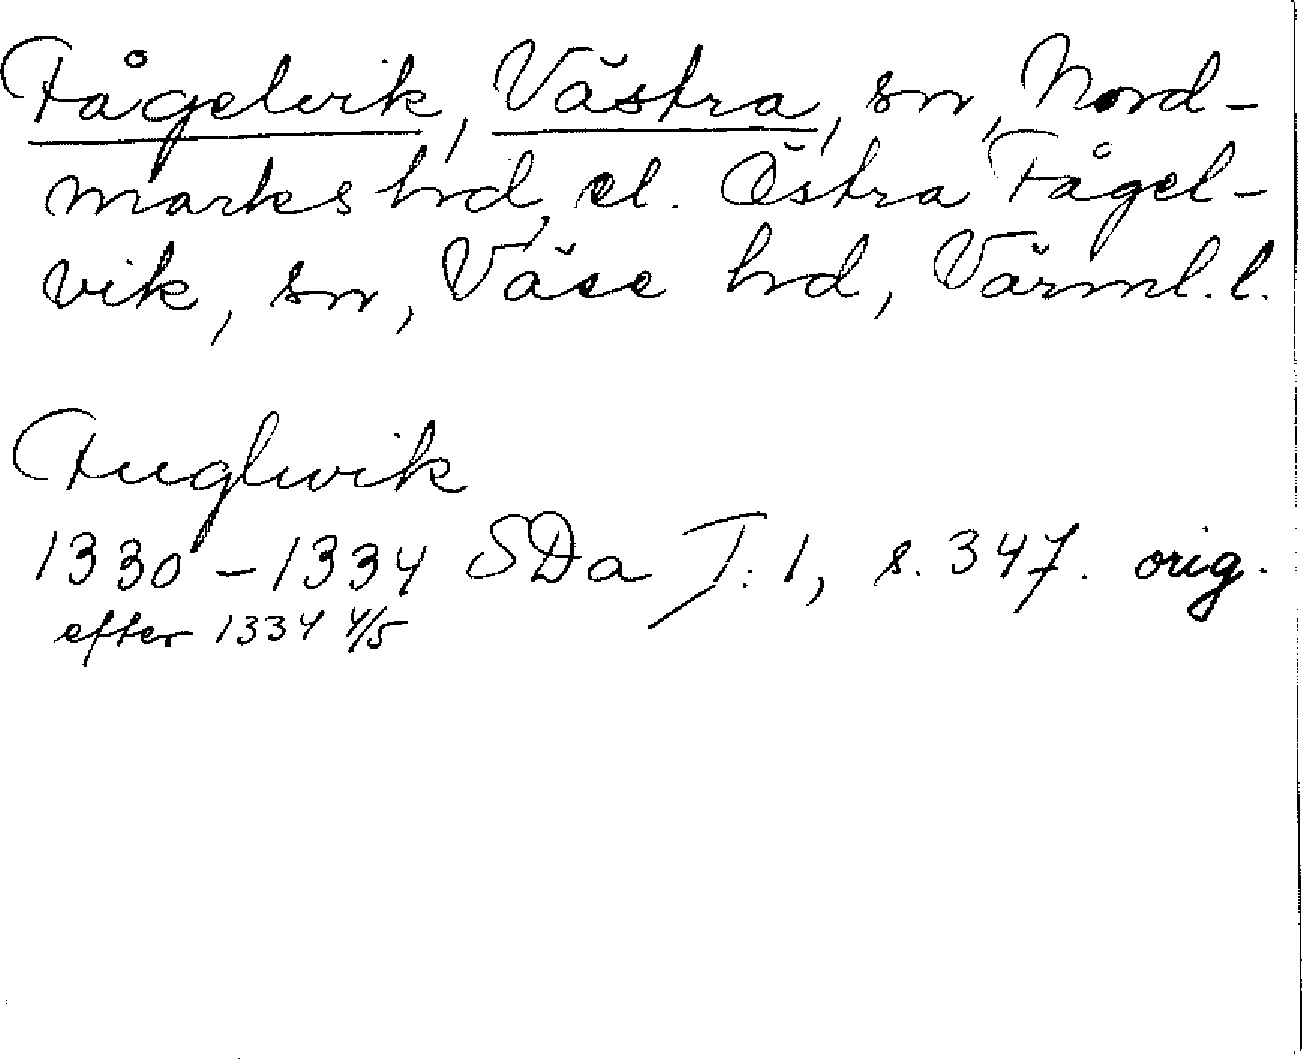 Fågelvik, Västra, sn, Nord-
marks hd, el. Östra Fågel-
vik, sn, Väse hd, Värml. l.
Fuglwik
1330-1334 SDa T: 1, s. 347. orig.
efter 1334 4/5